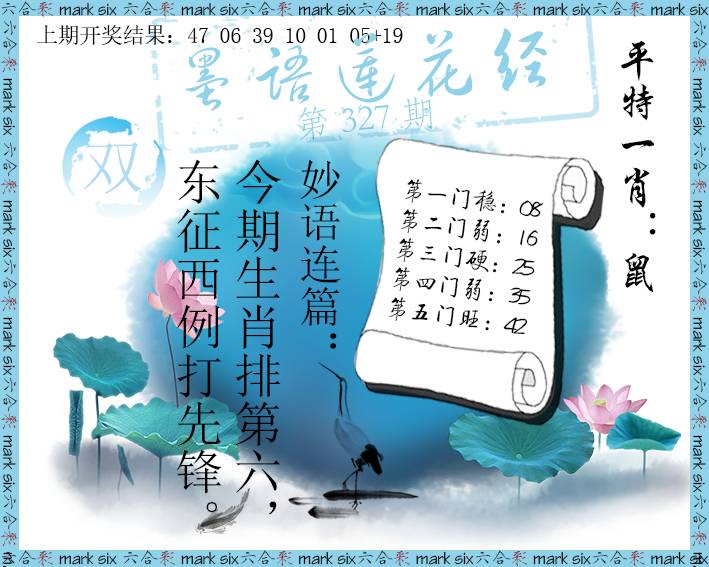 六合彩 mark six 六合彩 mark six 六合彩 mark six 六合彩 mark six 六合彩 mark six 六合彩
上期开奖结果：47 06 39 10 01 05+19
墨语莲花经
第 327 期
双
平特一肖：鼠
第一门稳：08
第二门弱：16
第三门硬：25
第四门弱：35
第五门旺：42
妙语连篇：
今期生肖排第六，
东征西例打先锋。
mark six 六合彩 mark six 六合彩 mark six 六合彩 mark six 六合彩 mark six 六合彩 mark six